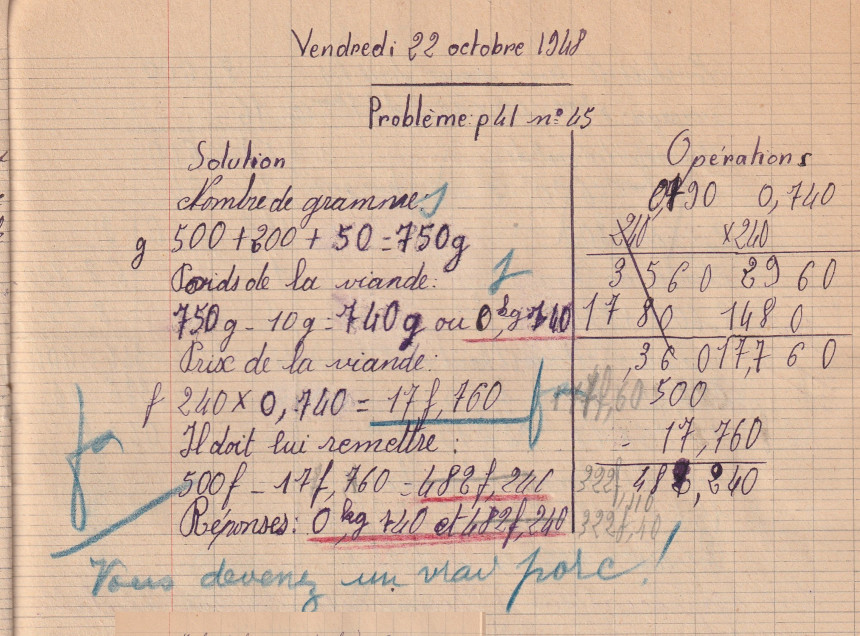 Vendredi 22 octobre 1948
Problème: p 41 n° 45
Solution
Nombre de grammes
g 500 + 200 + 50 = 750g
Poids de la viande:
750g - 10g = 740g ou 0kg,740
Prix de la viande:
f 240 × 0,740 = 17f,760
Il doit lui remettre:
500f - 17f,760 = 482f,240
Réponses: 0kg,740 et 482f,240
Opérations
0,740
×240
29 60
148 0
17,7 60
500
- 17,760
482,240
322f,10
Vous devenez un vrai porc!